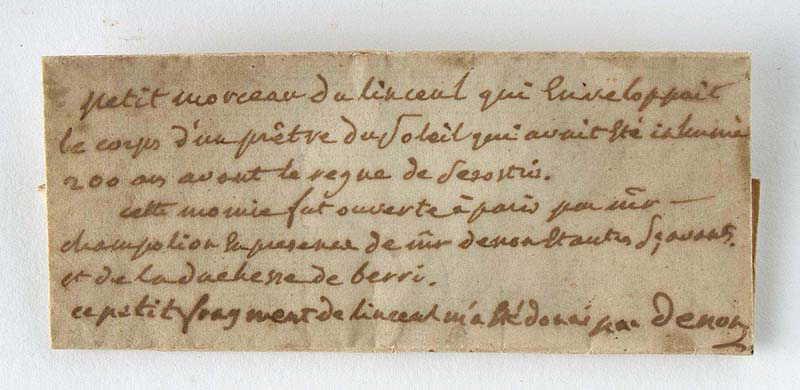 petit morceau du linceul qui Enveloppait
le corps d'un prêtre du Soleil qui avait Eté inhumé
200 ans avant le regne de Sesostris.
cette momie fut ouverte à paris par mr
champolion En presence de mr denon Et autres Sçavants.
et de la duchesse de berri.
ce petit fragment de linceul m'a Eté donné par denon